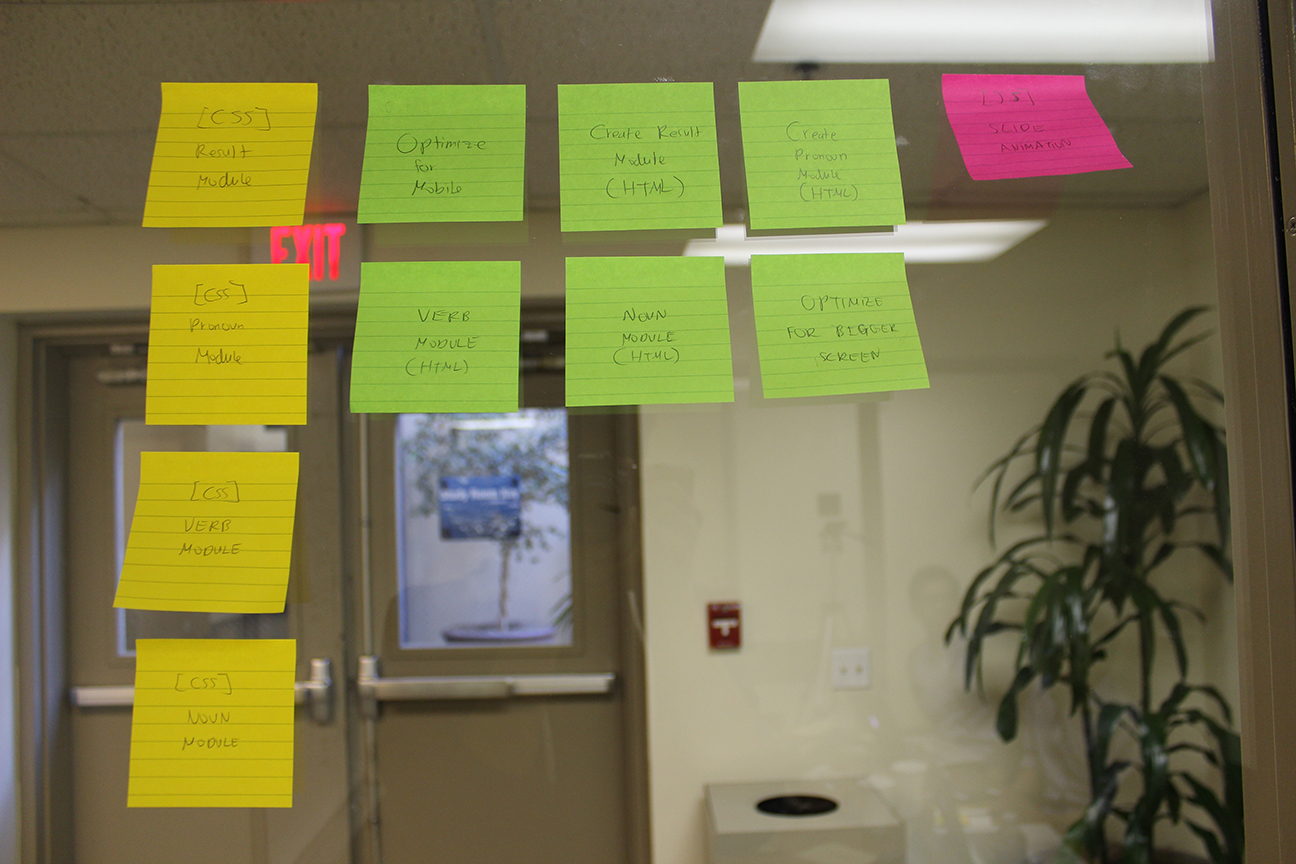 [CSS]
Result
Module
Optimize
for
Mobile
Create Result
Module
(HTML)
Create
Pronoun
Module
(HTML)
[JS]
SLIDE
ANIMATION
EXIT
[CSS]
Pronoun
Module
VERB
MODULE
(HTML)
NOUN
MODULE
(HTML)
OPTIMIZE
FOR BIGGER
SCREEN
[CSS]
VERB
MODULE
[CSS]
NOUN
MODULE